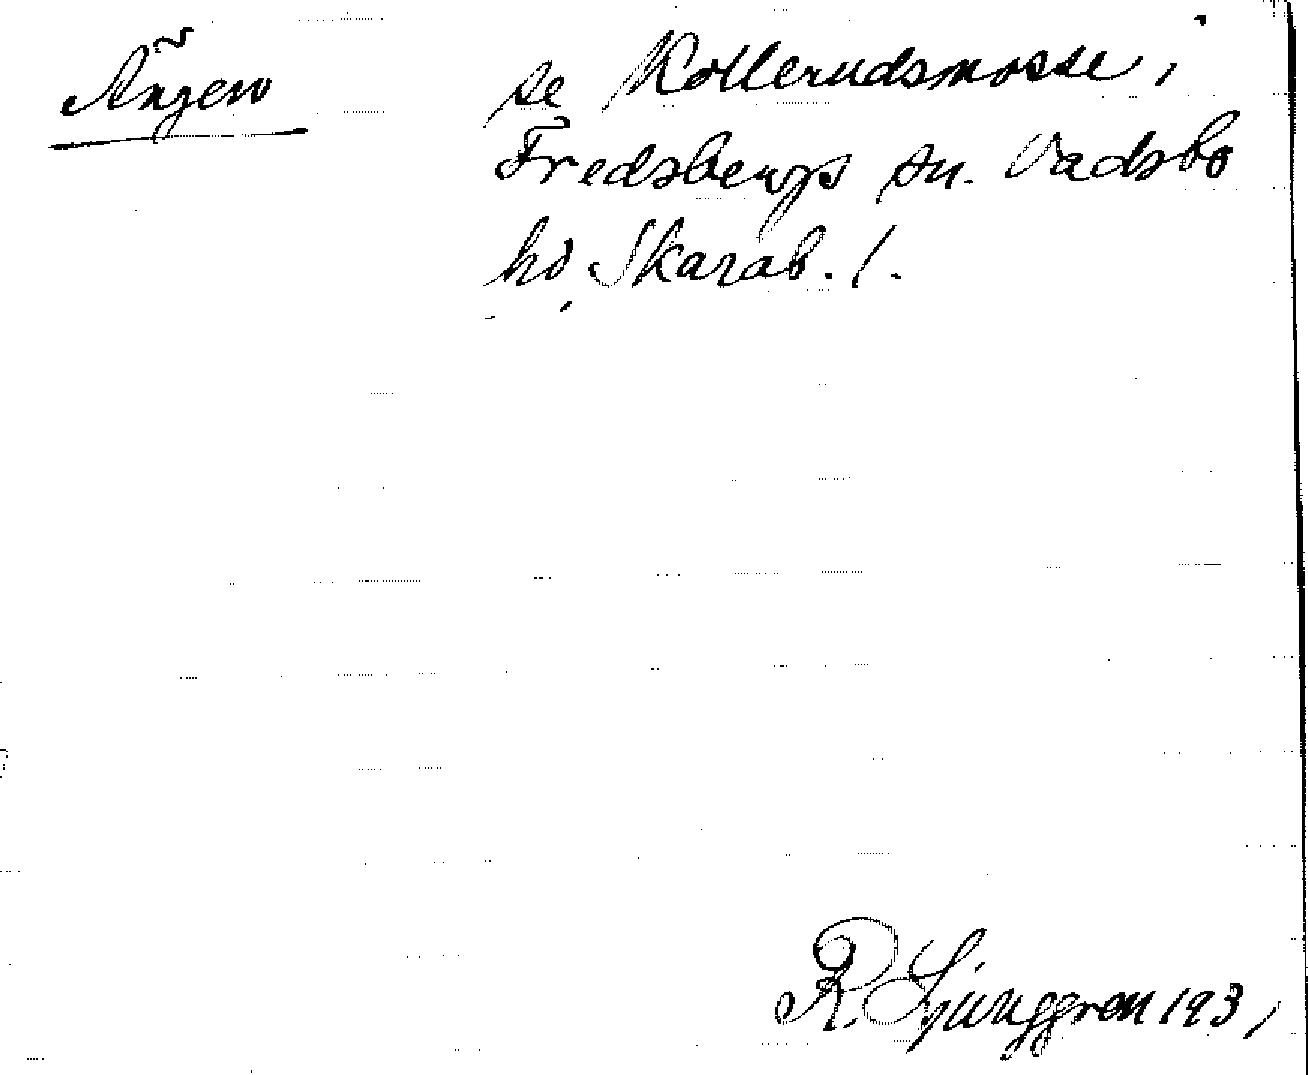 Ängen
se Kollerudsmosse i
Fredsbergs sn. Vadsbo
hd, Skarab. l.
R. Ljunggren 1931